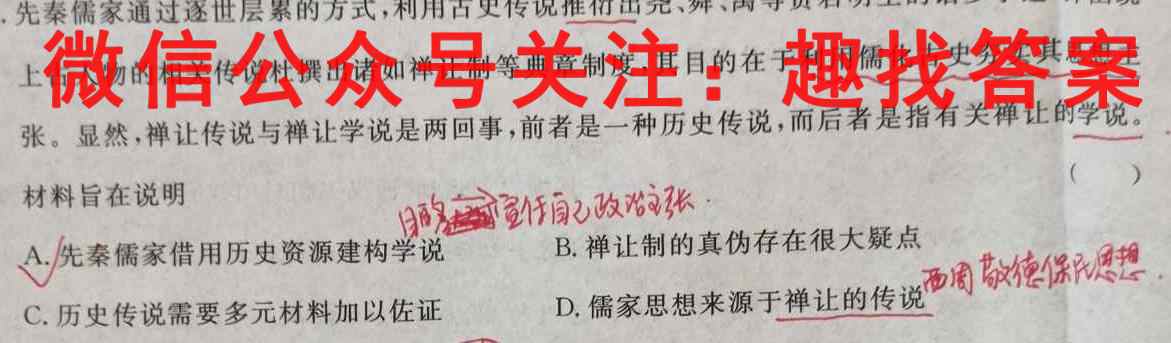 .先秦儒家通过逐世层累的方式,利用古史传说推衍出尧、舜、禹等贤君明王的诸多
微信公众号关注：趣找答案
上古人物的相关传说杜撰出诸如禅让制等典章制度,其目的在于利用儒家古史
张。显然,禅让传说与禅让学说是两回事,前者是一种历史传说,而后者是指有关禅让的学说。
材料旨在说明 ( )
目的 宣传自己政治主张.
A.先秦儒家借用历史资源建构学说 B.禅让制的真伪存在很大疑点
西周敬德保民思想.
C.历史传说需要多元材料加以佐证 D.儒家思想来源于禅让的传说